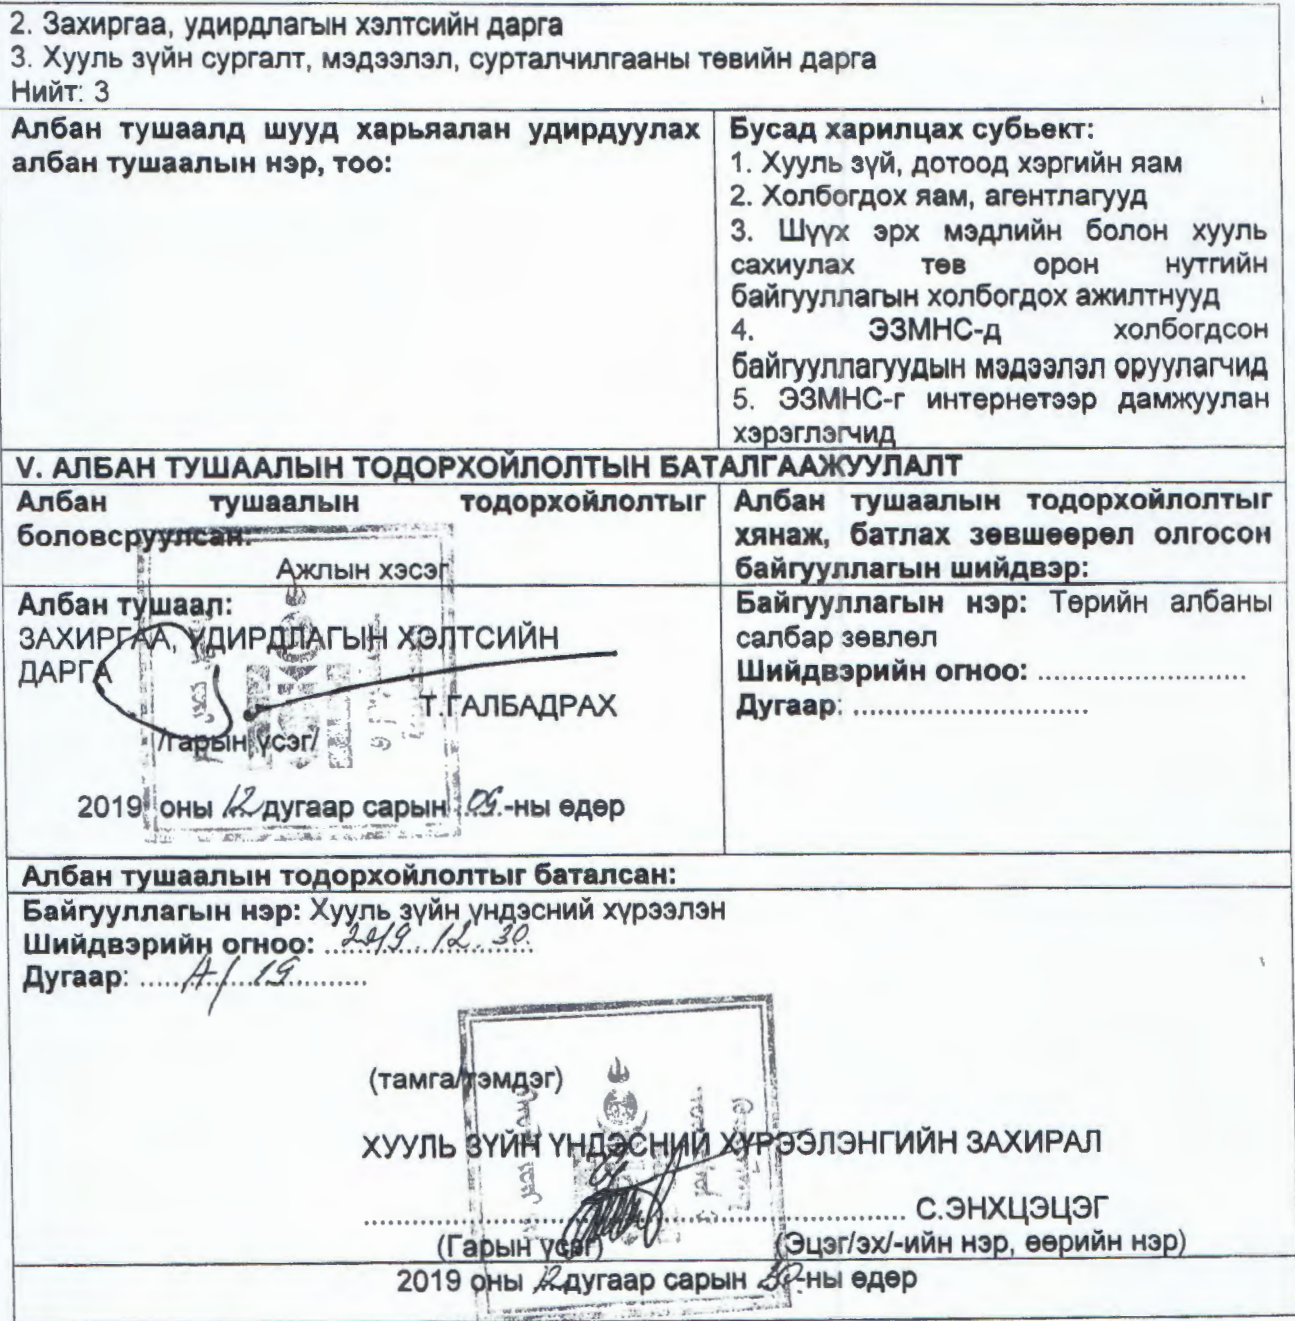 2. Захиргаа, удирдлагын хэлтсийн дарга
3. Хууль зүйн сургалт, мэдээлэл, сурталчилгааны төвийн дарга
Нийт: 3
Албан тушаалд шууд харьяалан удирдуулах
албан тушаалын нэр, тоо:
Бусад харилцах субьект:
1. Хууль зүй, дотоод хэргийн яам
2. Холбогдох яам, агентлагууд
3. Шүүх эрх мэдлийн болон хууль
сахиулах төв орон нутгийн
байгууллагын холбогдох ажилтнууд
4. ЭЗМНС-д холбогдсон
байгууллагуудын мэдээлэл оруулагчид
5. ЭЗМНС-г интернетээр дамжуулан
хэрэглэгчид
V. АЛБАН ТУШААЛЫН ТОДОРХОЙЛОЛТЫН БАТАЛГААЖУУЛАЛТ
Албан тушаалын тодорхойлолтыг
боловсруулсан:
Ажлын хэсэг
Албан тушаалын тодорхойлолтыг
хянаж, батлах зөвшөөрөл олгосон
байгууллагын шийдвэр:
Албан тушаал:
ЗАХИРГАА, УДИРДЛАГЫН ХЭЛТСИЙН
ДАРГА
Т.ГАЛБАДРАХ
/гарын үсэг/
2019 оны 12 дугаар сарын -ны өдөр
Байгууллагын нэр: Төрийн албаны
салбар зөвлөл
Шийдвэрийн огноо: ..........................
Дугаар: .............................
Албан тушаалын тодорхойлолтыг баталсан:
Байгууллагын нэр: Хууль зүйн үндэсний хүрээлэн
Шийдвэрийн огноо: 2019.12.30.
Дугаар: А/19
(тамга/тэмдэг)
ХУУЛЬ ЗҮЙН ҮНДЭСНИЙ ХҮРЭЭЛЭНГИЙН ЗАХИРАЛ
.......................................................... С.ЭНХЦЭЦЭГ
(Гарын үсэг) (Эцэг/эх/-ийн нэр, өөрийн нэр)
2019 оны 12 дугаар сарын 30-ны өдөр